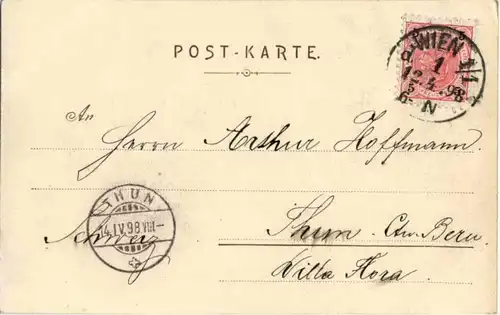 POST-KARTE.
WIEN 1/1
d 1
12.4.98
6-N
An
Herrn Arthur Hoffmann.
THUN
14.IV.98 VIII-
Thun. Ctn. Bern
Schweiz
Villa Flora.